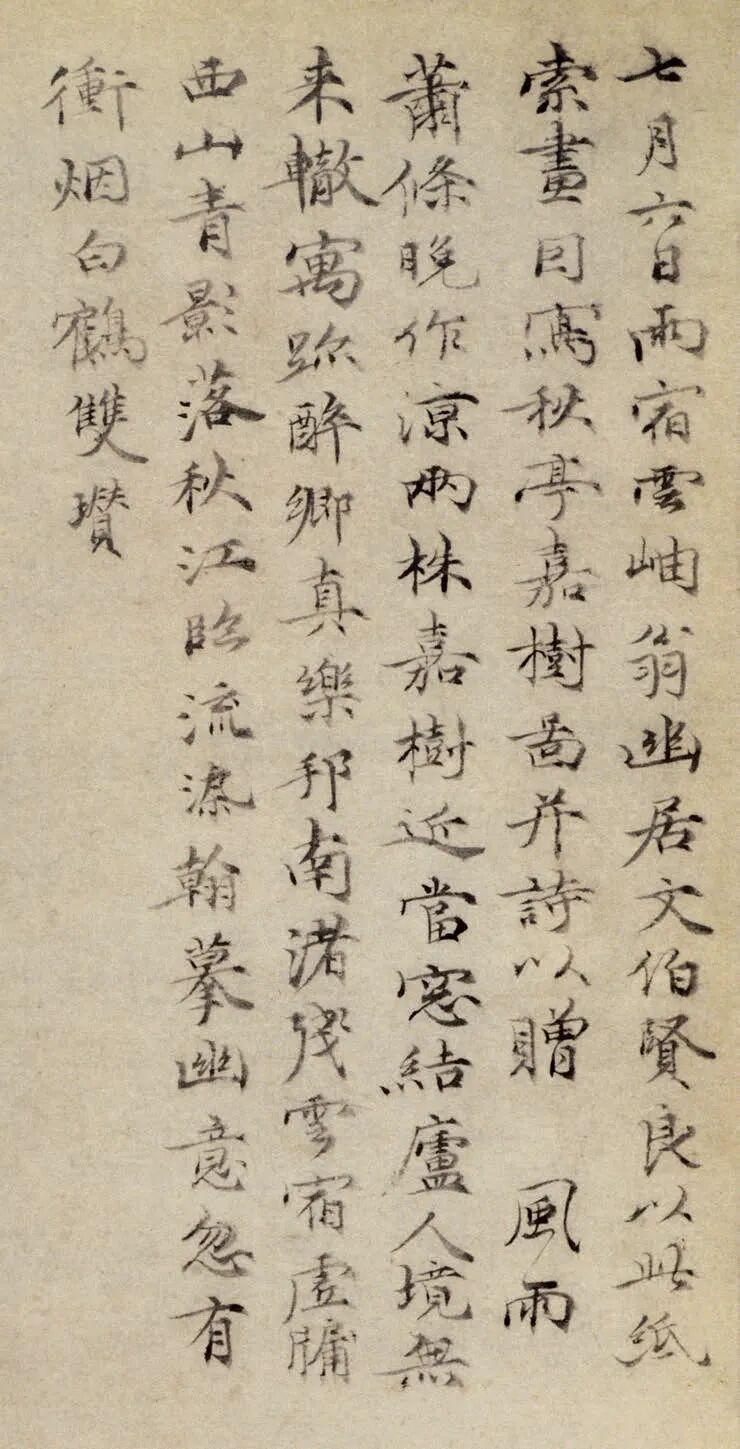 七月六日雨宿雲岫翁幽居文伯賢良以此紙
索畫因寫秋亭嘉樹啚并詩以贈 風雨
蕭條晚作涼兩株嘉樹近當窓結廬人境無
来轍寓跡醉鄉真樂邦南渚殘雲宿虛牖
西山青影落秋江臨流染翰摹幽意忽有
衝烟白鶴雙瓚